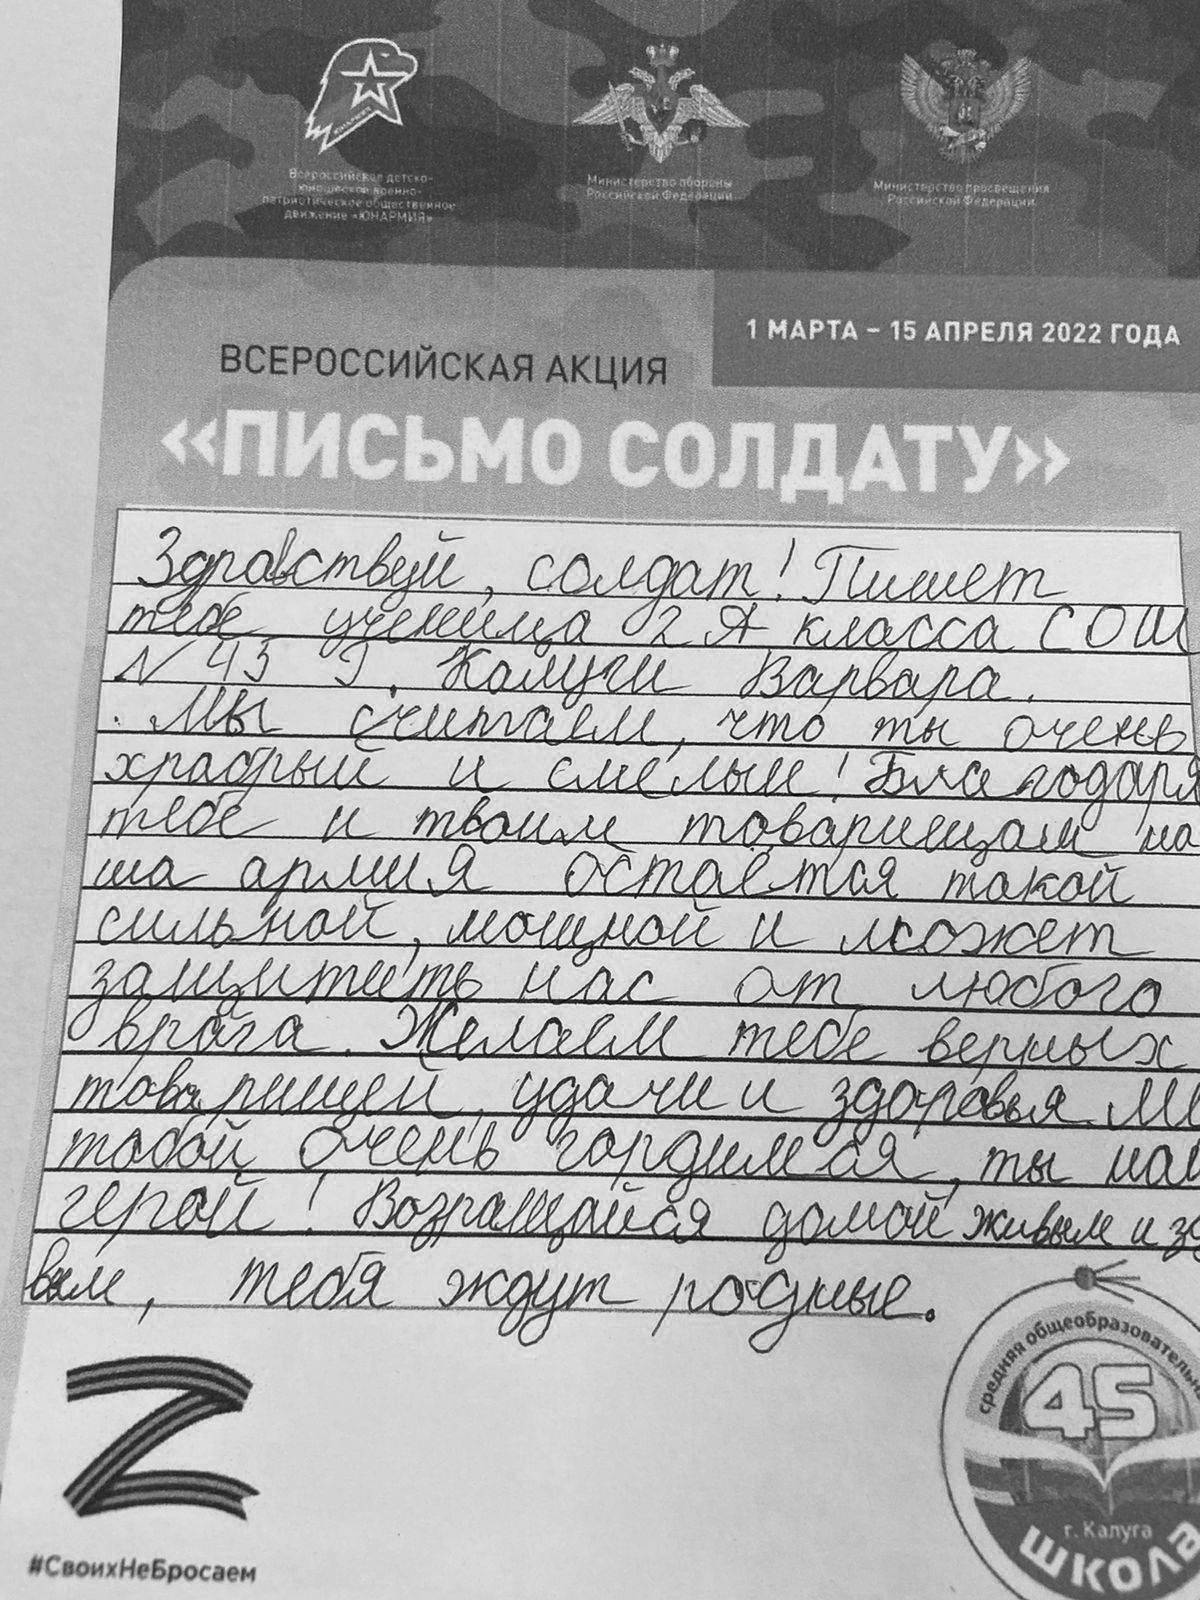 Всероссийское детско-
юношеское военно-
патриотическое общественное
движение «ЮНАРМИЯ»
Министерство обороны
Российской Федерации
Министерство просвещения
Российской Федерации
1 МАРТА – 15 АПРЕЛЯ 2022 ГОДА
ВСЕРОССИЙСКАЯ АКЦИЯ
«ПИСЬМО СОЛДАТУ»
Здравствуй, солдат! Пишет
тебе ученица 2 А класса СОШ
N 45 г. Калуги Варвара.
Мы считаем, что ты очень
храбрый и смелый! Благодаря
тебе и твоим товарищам на
ша армия остаётся такой
сильной, мощной и может
защитить нас от любого
врага. Желаем тебе верных
товарищей, удачи и здоровья. Мы
тобой очень гордимся, ты наш
герой! Возращайся домой живым и здо
вым, тебя ждут родные.
#СвоихНеБросаем
средняя общеобразовательная
45
г. Калуга
школа